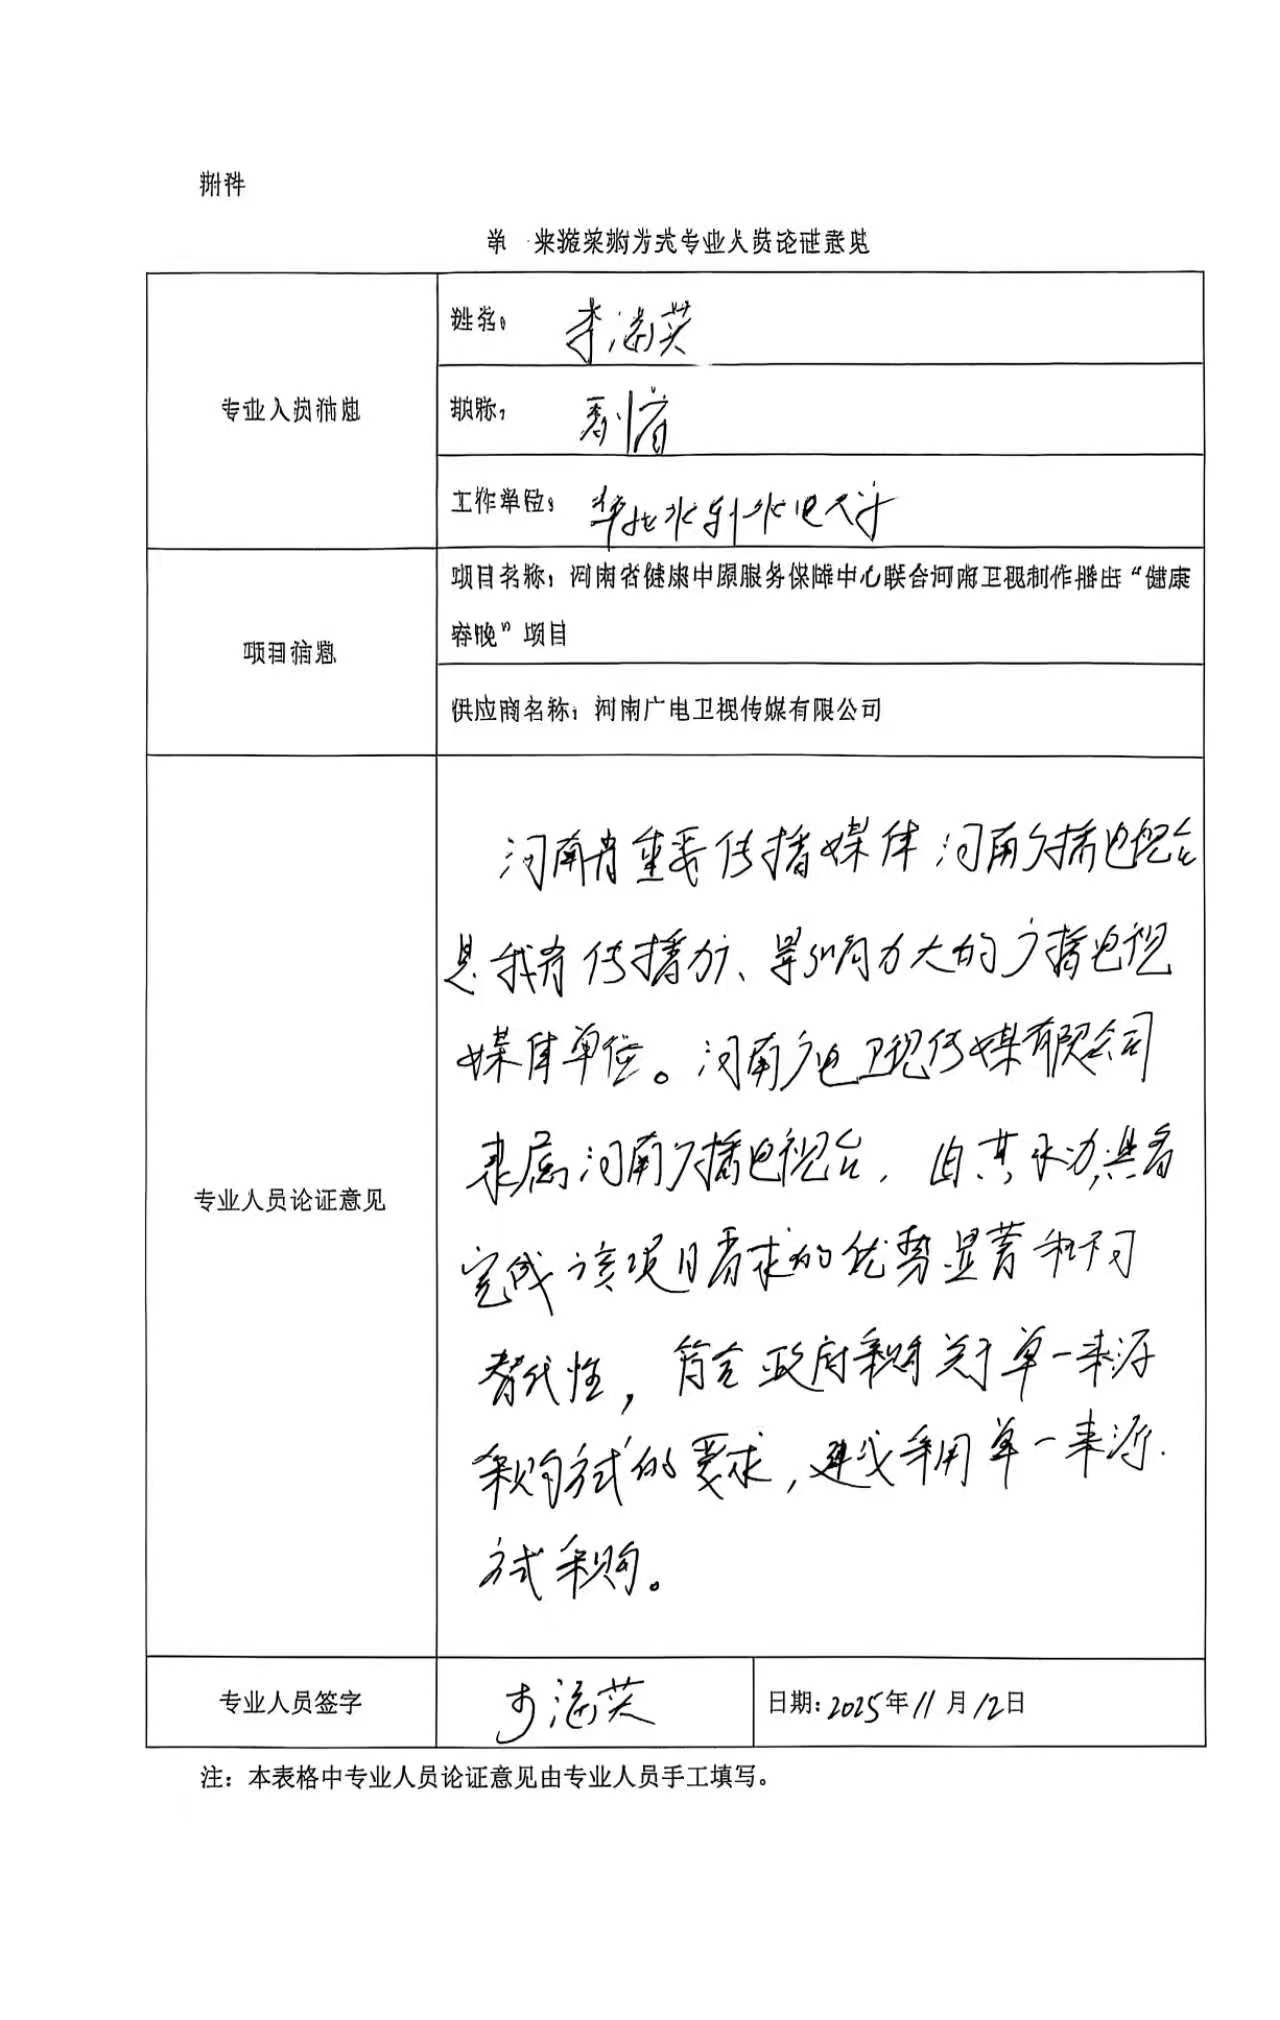 附件
单一来源采购方式专业人员论证意见
专业人员信息
姓名：李海英
职称：副高
工作单位：华北水利水电大学
项目信息
项目名称：河南省健康中原服务保障中心联合河南卫视制作播出“健康
春晚”项目
供应商名称：河南广电卫视传媒有限公司
专业人员论证意见
河南省重要传播媒体河南广播电视台
是我省传播力、影响力大的广播电视
媒体单位。河南广电卫视传媒有限公司
隶属河南广播电视台，由其承办，具备
完成该项目需求的优势显著和不可
替代性，符合政府采购关于单一来源
采购方式的要求，建议采用单一来源
方式采购。
专业人员签字
李海英
日期：2025年11月12日
注：本表格中专业人员论证意见由专业人员手工填写。